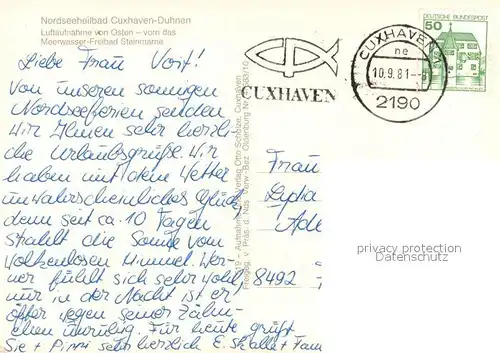 Nordseeheilbad Cuxhaven-Duhnen
Luftaufnahme von Osten - vorn das
Meerwasser-Freibad Steinmarne
Liebe Frau Vorf!
Von unseren sonnigen
Nordseeferien senden
wir Ihnen sehr herzl.
die Urlaubsgrüße. Wir
haben mit dem Wetter
unwahrscheinliches Glück,
denn seit ca. 10 Tagen
strahlt die Sonne vom
wolkenlosen Himmel. Wer-
ner fühlt sich sehr wohl,
nur in der Nacht ist er
öfter wegen seiner Zähn-
chen unruhig. Für heute grüßt
Sie + Pippi sehr herzlich E. Skalla + Fam
CUXHAVEN
CUXHAVEN 1
ne
10.9.81
2190
DEUTSCHE BUNDESPOST
50
Frau
Lydia
Ade
8492
privacy protection
Datenschutz
Verlag Otto Schulze, Cuxhaven
Freigeg. v. Präs. d. Nds. Verw.-Bez. Oldenburg